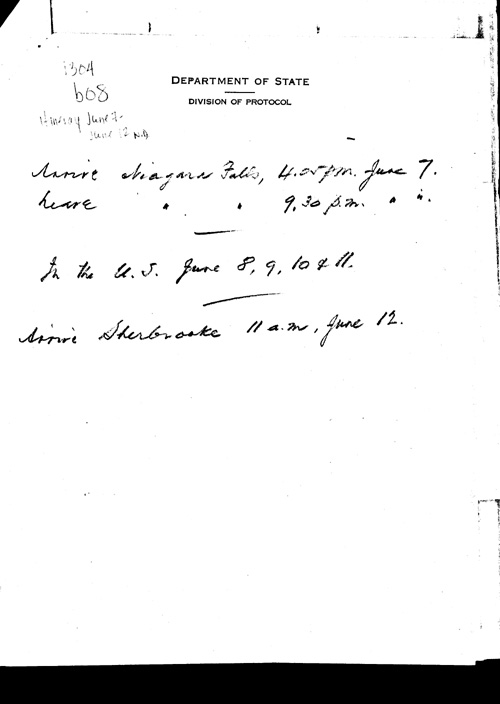 1304
b08
Itinerary June 7-
June 12 N.D
DEPARTMENT OF STATE
DIVISION OF PROTOCOL
Arrive Niagara Falls, 4.05 p.m. June 7.
Leave " " 9.30 p.m. " ".
In the U.S. June 8, 9, 10 & 11.
Arrive Sherbrooke 11 a.m., June 12.